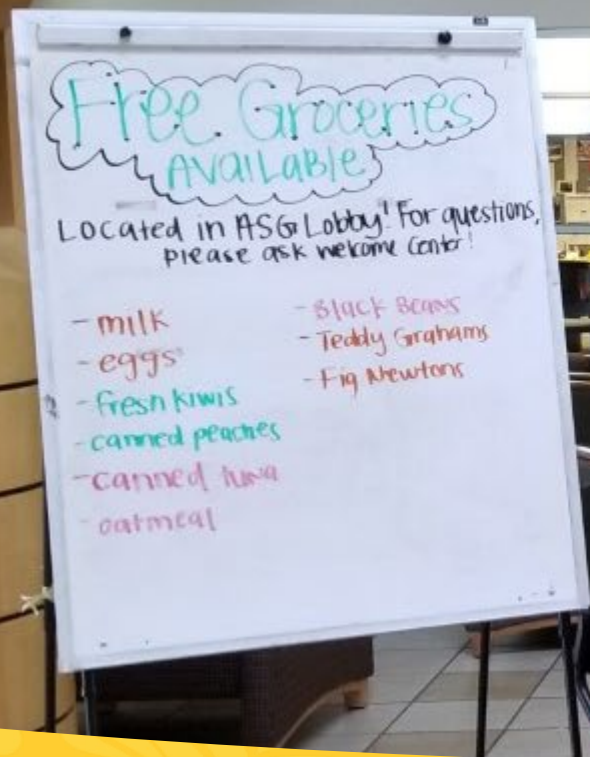 Free Groceries
Available
Located in ASG Lobby! For questions,
please ask welcome center!
- milk
- eggs
- fresh kiwis
- canned peaches
- canned tuna
- oatmeal
- Black Beans
- Teddy Grahams
- Fig Newtons